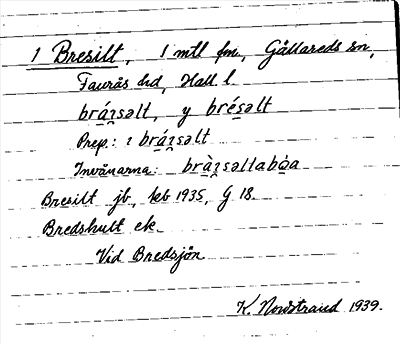 1 Bresilt, 1 mtl fm, Gällareds sn,
Faurås hd, Hall. l.
brá̱ı̱səlt, y brésəlt
Prep.: i brá̱ı̱səlt
Invånarna: brà̱ı̱səltabò̱a
Bresilt jb, kb 1935, G 18.
Bredshult ek.
Vid Bredsjön
K. Nordstrand 1939.